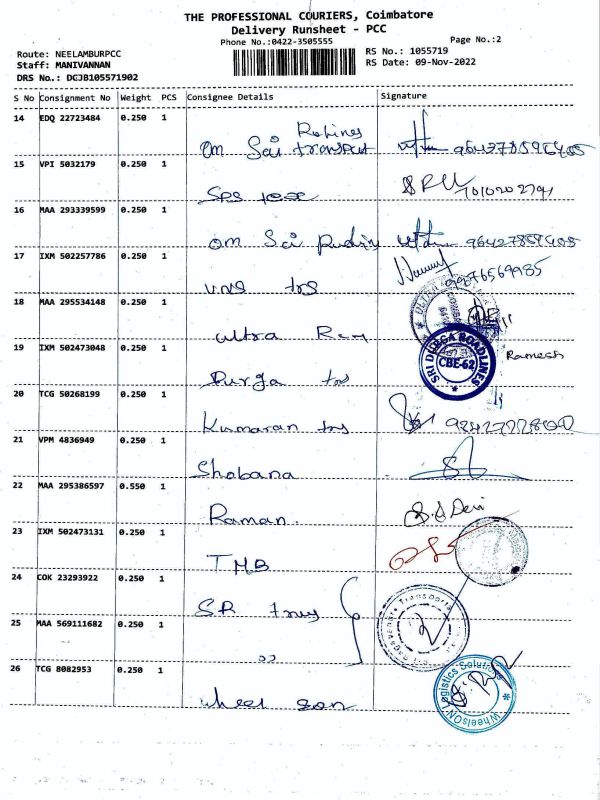 THE PROFESSIONAL COURIERS, Coimbatore
Delivery Runsheet - PCC
Phone No.:0422-3505555
Page No.:2
Route: NEELAMBURPCC
RS No.: 1055719
Staff: MANIVANNAN
RS Date: 09-Nov-2022
DRS No.: DCJB105571902
S No Consignment No Weight PCS Consignee Details Signature
14 EDQ 22723484 0.250 1
Om Sai transport
15 VPI 5032179 0.250 1
SPS
16 MAA 293339599 0.250 1
Om Sai
17 IXM 502257786 0.250 1
VNS trs 9976569985
18 MAA 295534148 0.250 1
ultra
19 IXM 502473048 0.250 1
Durga trs
SRI DURGA ROADLINES
CBE-62
Ramesh
20 TCG 50268199 0.250 1
Kumaran trs
21 VPM 4836949 0.250 1
Shobana
22 MAA 295386597 0.550 1
Raman.
23 IXM 502473131 0.250 1
TMB
24 COK 23293922 0.250 1
SR
25 MAA 569111682 0.250 1
26 TCG 8082953 0.250 1
wheel son
WheelsON Logistics Solutions